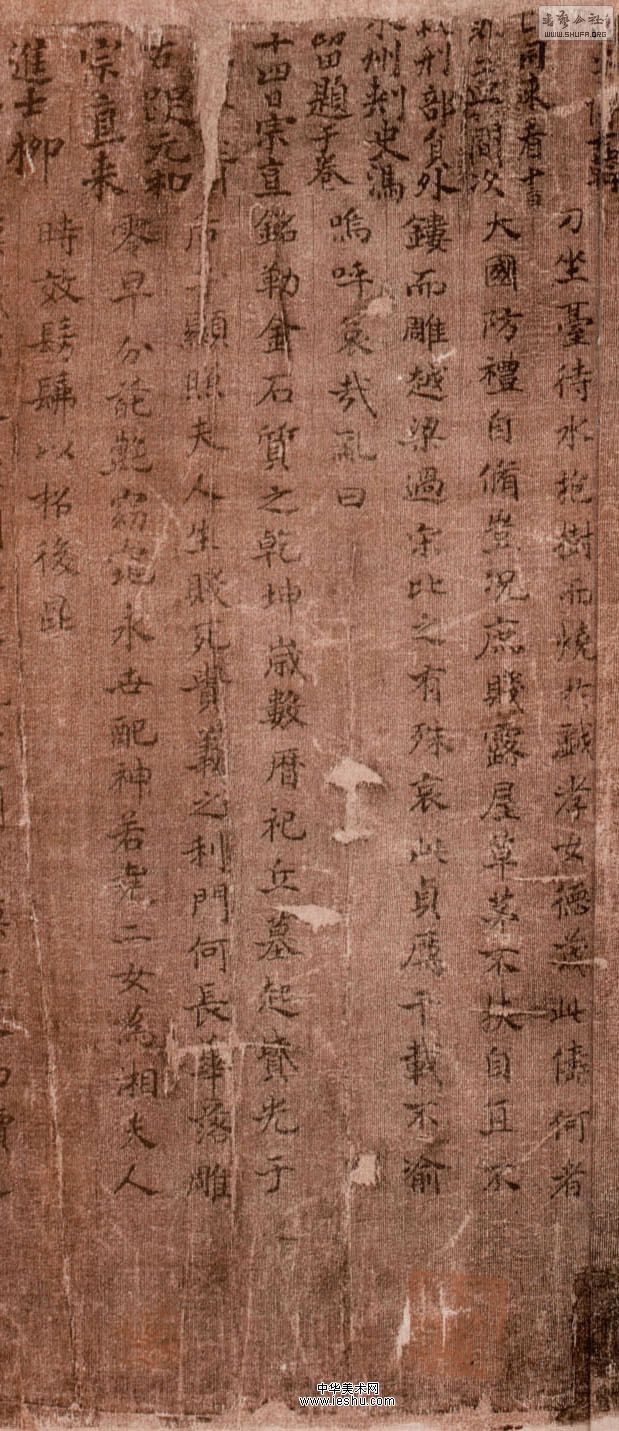 書藝公社
WWW.SHUFA.ORG
同來看
刑部員外
州刺史馮
留題于卷
十四日宗直
元和
宗直来
進士柳
刀坐臺待水抱樹而燒於戲孝女德茂此儔何者
大國防禮自脩豈況庶賤露屋草茅不扶自直不
鏤而雕越梁過宋比之有殊哀此貞厲千載不渝
嗚呼哀哉亂曰
銘勒金石質之乾坤歲數曆祀丘墓起墳光于
后土顯照夫人生賤死貴義之利門何長華落雕
零早分葩艷窈窕永世配神若堯二女為湘夫人
時效髣髴以招後昆
中华美术网
www.ieshu.com